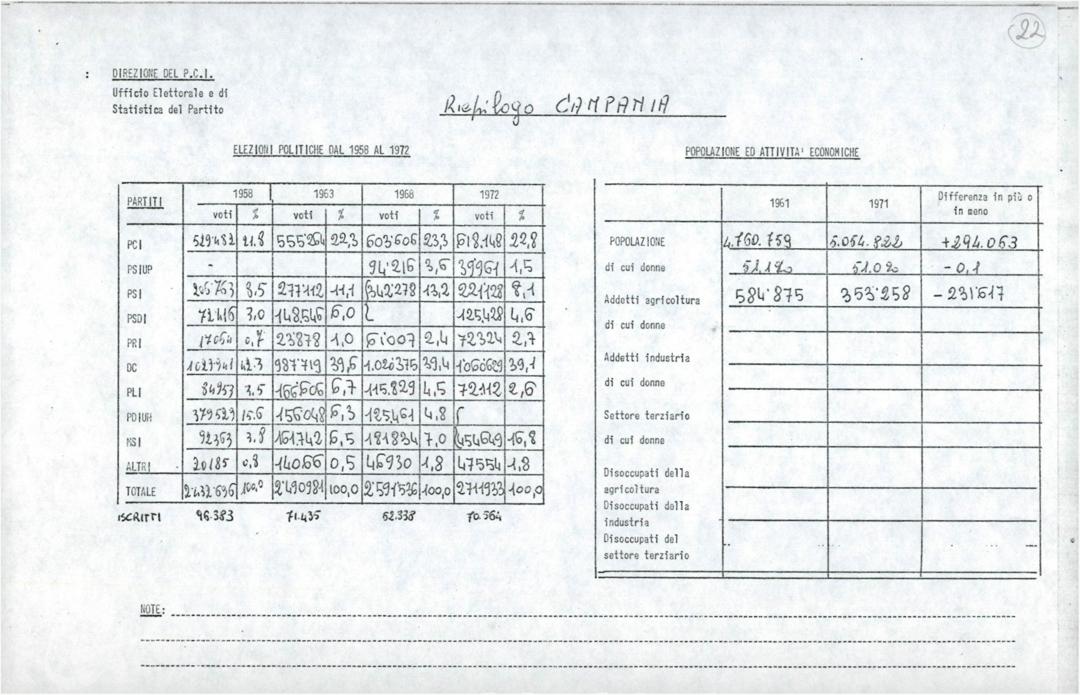 22
: DIREZIONE DEL P.C.I.
Ufficio Elettorale e di
Statistica del Partito
Riepilogo CAMPANIA
ELEZIONI POLITICHE DAL 1958 AL 1972
PARTITI 1958 1963 1968 1972
voti % voti % voti % voti %
PCI 529'482 21.8 555'264 22,3 603'606 23,3 618.148 22,8
PSIUP - 94'216 3,6 39961 1,5
PSI 206'763 8.5 277112 11,1 342'278 13,2 221'128 8,1
PSDI 72'416 3,0 148,546 6,0 125,428 4,6
PRI 17054 0,7 23878 1,0 61'007 2,4 72324 2,7
DC 42.3 987'719 39,6 1.026'375 39,4 1'060'609 39,1
PLI 84953 3.5 166'606 6,7 115.829 4,5 72.112 2,6
PDIUM 379523 15.6 156'048 6,3 125,461 4,8
MSI 92363 3.8 161742 6,5 181834 7,0 454649 16,8
ALTRI 20185 0,8 14066 0,5 46930 1,8 47554 1,8
TOTALE 2'432'696 100,0 2'490981 100,0 2'591'536 100,0 2711933 100,0
ISCRITTI 96.383 71.435 62.338 70.564
POPOLAZIONE ED ATTIVITA' ECONOMICHE
1961 1971 Differenza in più o
in meno
POPOLAZIONE 4.760.759 5.054.822 +294.063
di cui donne 51.1% 51.0% -0,1
Addetti agricoltura 584'875 353'258 -231'617
di cui donne
Addetti industria
di cui donne
Settore terziario
di cui donne
Disoccupati della
agricoltura
Disoccupati dolla
industria
Disoccupati del
settore terziario
NOTE: